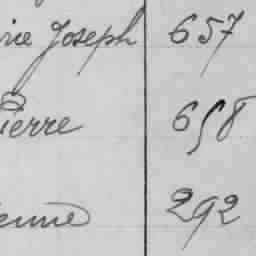 rie Joseph 657
Pierre 658
ienne 292